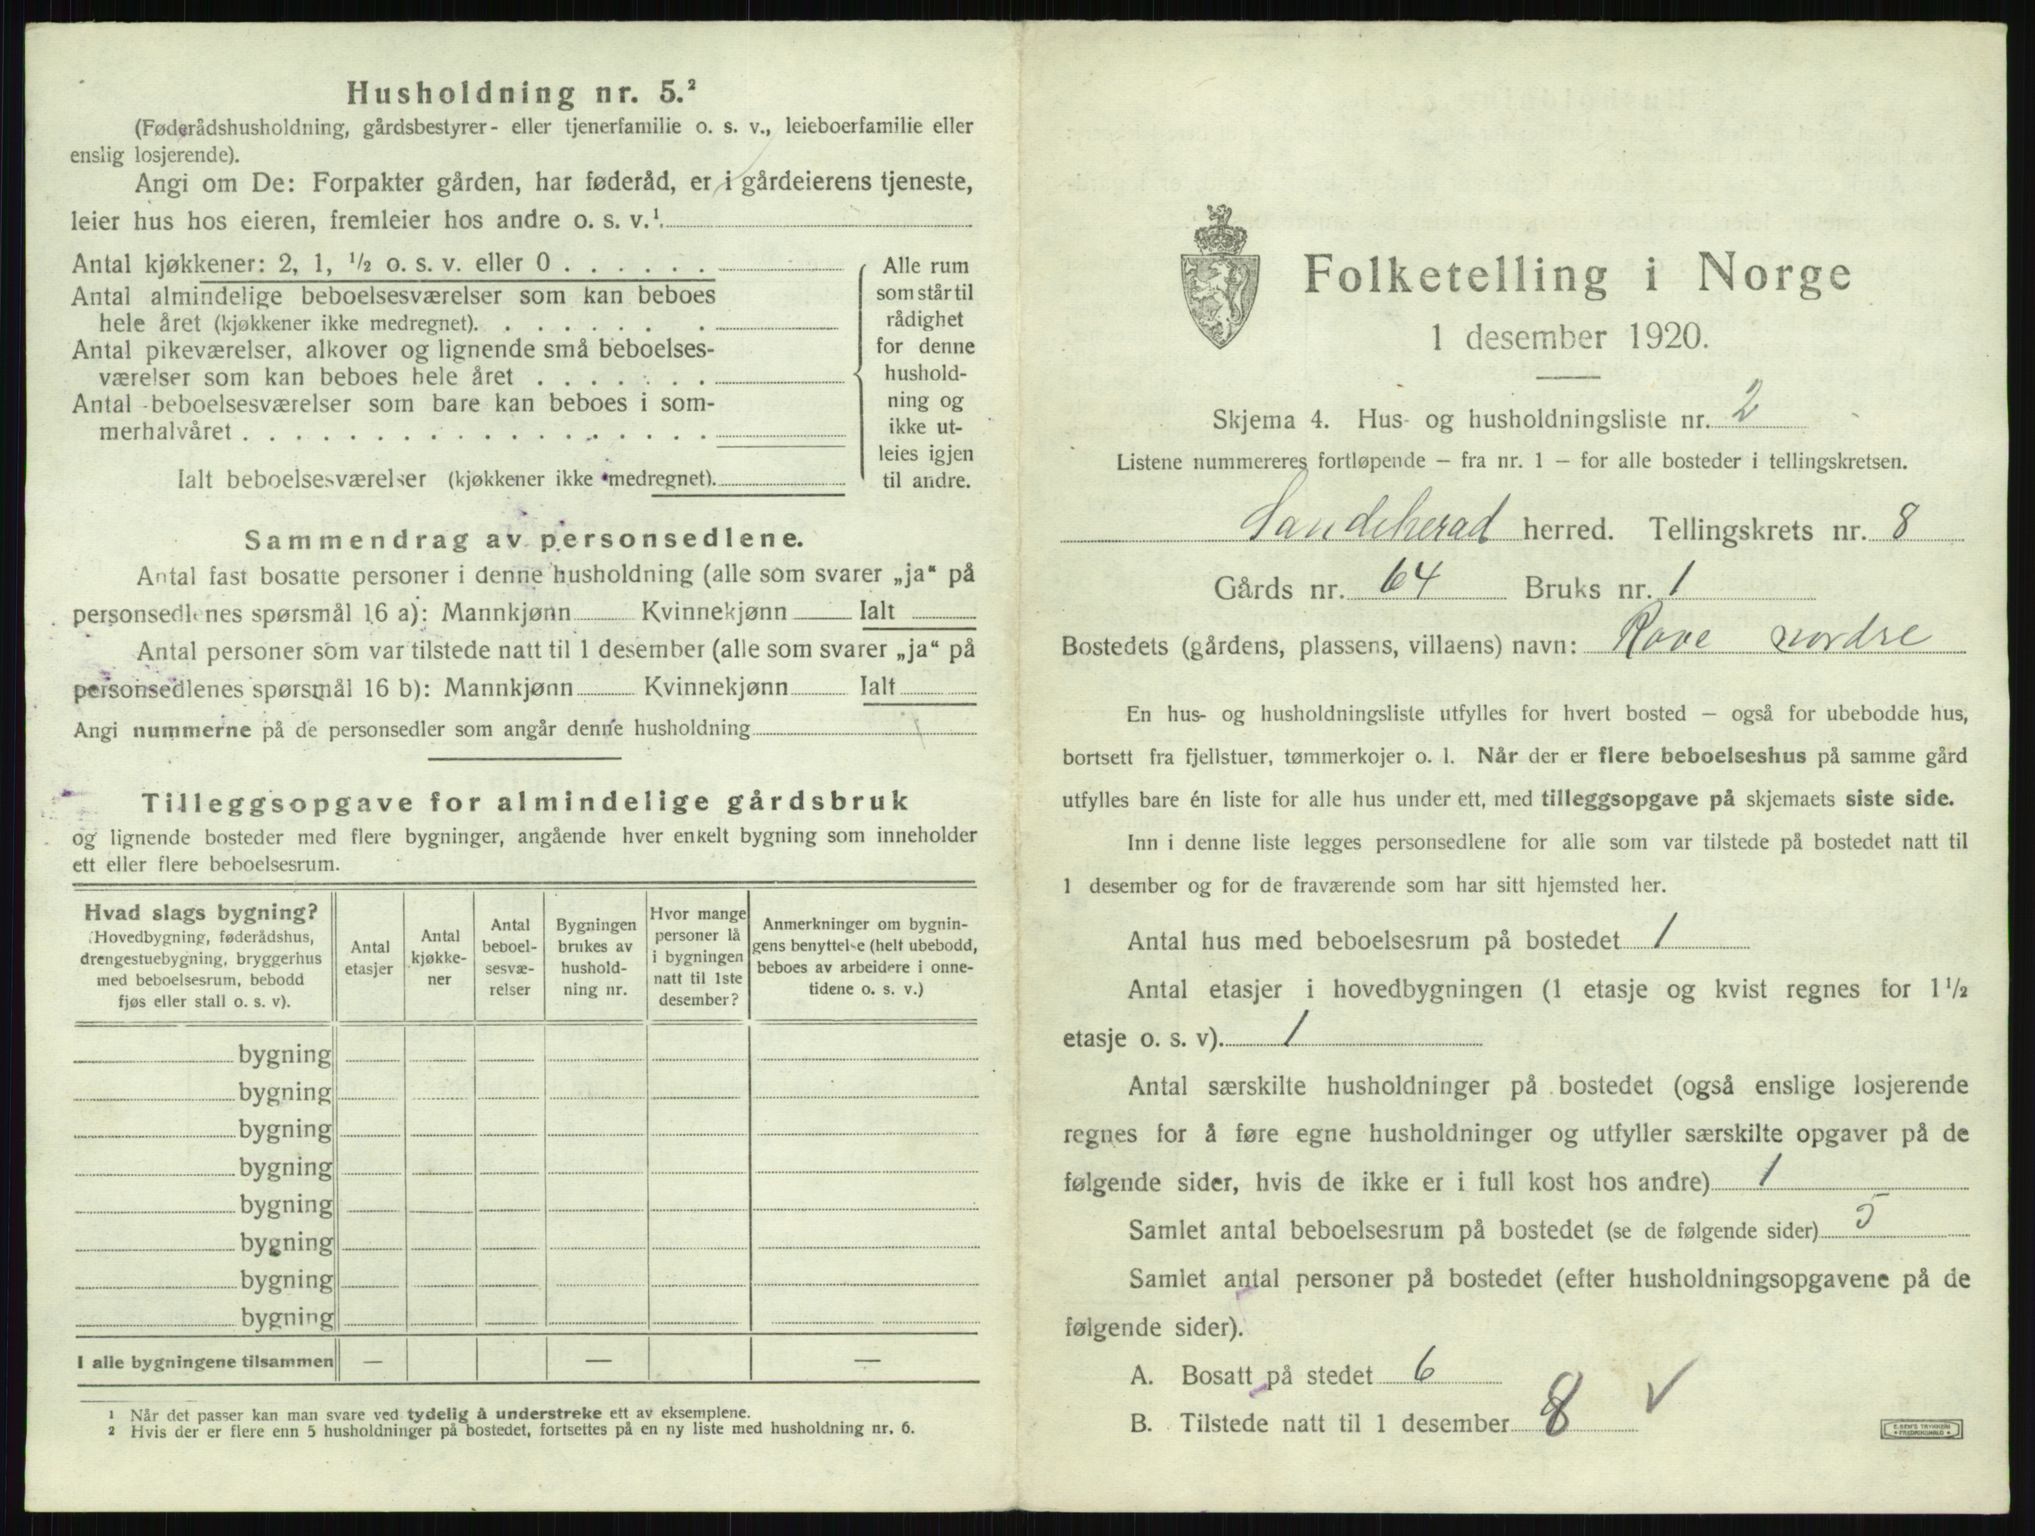 Husholdning nr. 5.²
(Føderådshusholdning, gårdsbestyrer- eller tjenerfamilie o. s. v., leieboerfamilie eller
enslig losjerende).
Angi om De: Forpakter gården, har føderåd, er i gårdeierens tjeneste,
leier hus hos eieren, fremleier hos andre o. s. v.¹.
Antal kjøkkener: 2, 1, ½ o. s. v. eller 0 . . . . . .
Antal almindelige beboelsesværelser som kan beboes
hele året (kjøkkener ikke medregnet). . . . . . . .
Antal pikeværelser, alkover og lignende små beboelses-
værelser som kan beboes hele året . . . . . . .
Antal beboelsesværelser som bare kan beboes i som-
merhalvåret . . . . . . . . . . . . . . . . . .
Ialt beboelsesværelser (kjøkkener ikke medregnet).
Alle rum
som står til
rådighet
for denne
hushold-
ning og
ikke ut-
leies igjen
til andre.
Sammendrag av personsedlene.
Antal fast bosatte personer i denne husholdning (alle som svarer „ja“ på
personsedlenes spørsmål 16 a): Mannkjønn Kvinnekjønn Ialt
Antal personer som var tilstede natt til 1 desember (alle som svarer „ja“ på
personsedlenes spørsmål 16 b): Mannkjønn Kvinnekjønn Ialt
Angi nummerne på de personsedler som angår denne husholdning
Tilleggsopgave for almindelige gårdsbruk
og lignende bosteder med flere bygninger, angående hver enkelt bygning som inneholder
ett eller flere beboelsesrum.
Hvad slags bygning?
(Hovedbygning, føderådshus,
drengestuebygning, bryggerhus
med beboelsesrum, bebodd
fjøs eller stall o. s. v).
Antal
etasjer
Antal
kjøkke-
ner
Antal
beboel-
sesvæ-
relser
Bygningen
brukes av
hushold-
ning nr.
Hvor mange
personer lå
i bygningen
natt til 1ste
desember?
Anmerkninger om bygnin-
gens benyttelse (helt ubebodd,
beboes av arbeidere i onne-
tidene o. s. v.)
bygning
bygning
bygning
bygning
bygning
bygning
bygning
bygning
I alle bygningene tilsammen — — —
1 Når det passer kan man svare ved tydelig å understreke ett av eksemplene.
2 Hvis der er flere enn 5 husholdninger på bostedet, fortsettes på en ny liste med husholdning nr. 6.
Folketelling i Norge
1 desember 1920.
Skjema 4. Hus- og husholdningsliste nr. 2
Listene nummereres fortløpende – fra nr. 1 – for alle bosteder i tellingskretsen.
Sandeherad herred. Tellingskrets nr. 8
Gårds nr. 64 Bruks nr. 1
Bostedets (gårdens, plassens, villaens) navn: Rove nordre
En hus- og husholdningsliste utfylles for hvert bosted – også for ubebodde hus,
bortsett fra fjellstuer, tømmerkojer o. l. Når der er flere beboelseshus på samme gård
utfylles bare én liste for alle hus under ett, med tilleggsopgave på skjemaets siste side.
Inn i denne liste legges personsedlene for alle som var tilstede på bostedet natt til
1 desember og for de fraværende som har sitt hjemsted her.
Antal hus med beboelsesrum på bostedet 1
Antal etasjer i hovedbygningen (1 etasje og kvist regnes for 1½
etasje o. s. v). 1
Antal særskilte husholdninger på bostedet (også enslige losjerende
regnes for å føre egne husholdninger og utfyller særskilte opgaver på de
følgende sider, hvis de ikke er i full kost hos andre) 1
Samlet antal beboelsesrum på bostedet (se de følgende sider) 5
Samlet antal personer på bostedet (efter husholdningsopgavene på de
følgende sider).
A. Bosatt på stedet 6
B. Tilstede natt til 1 desember 8 ✓